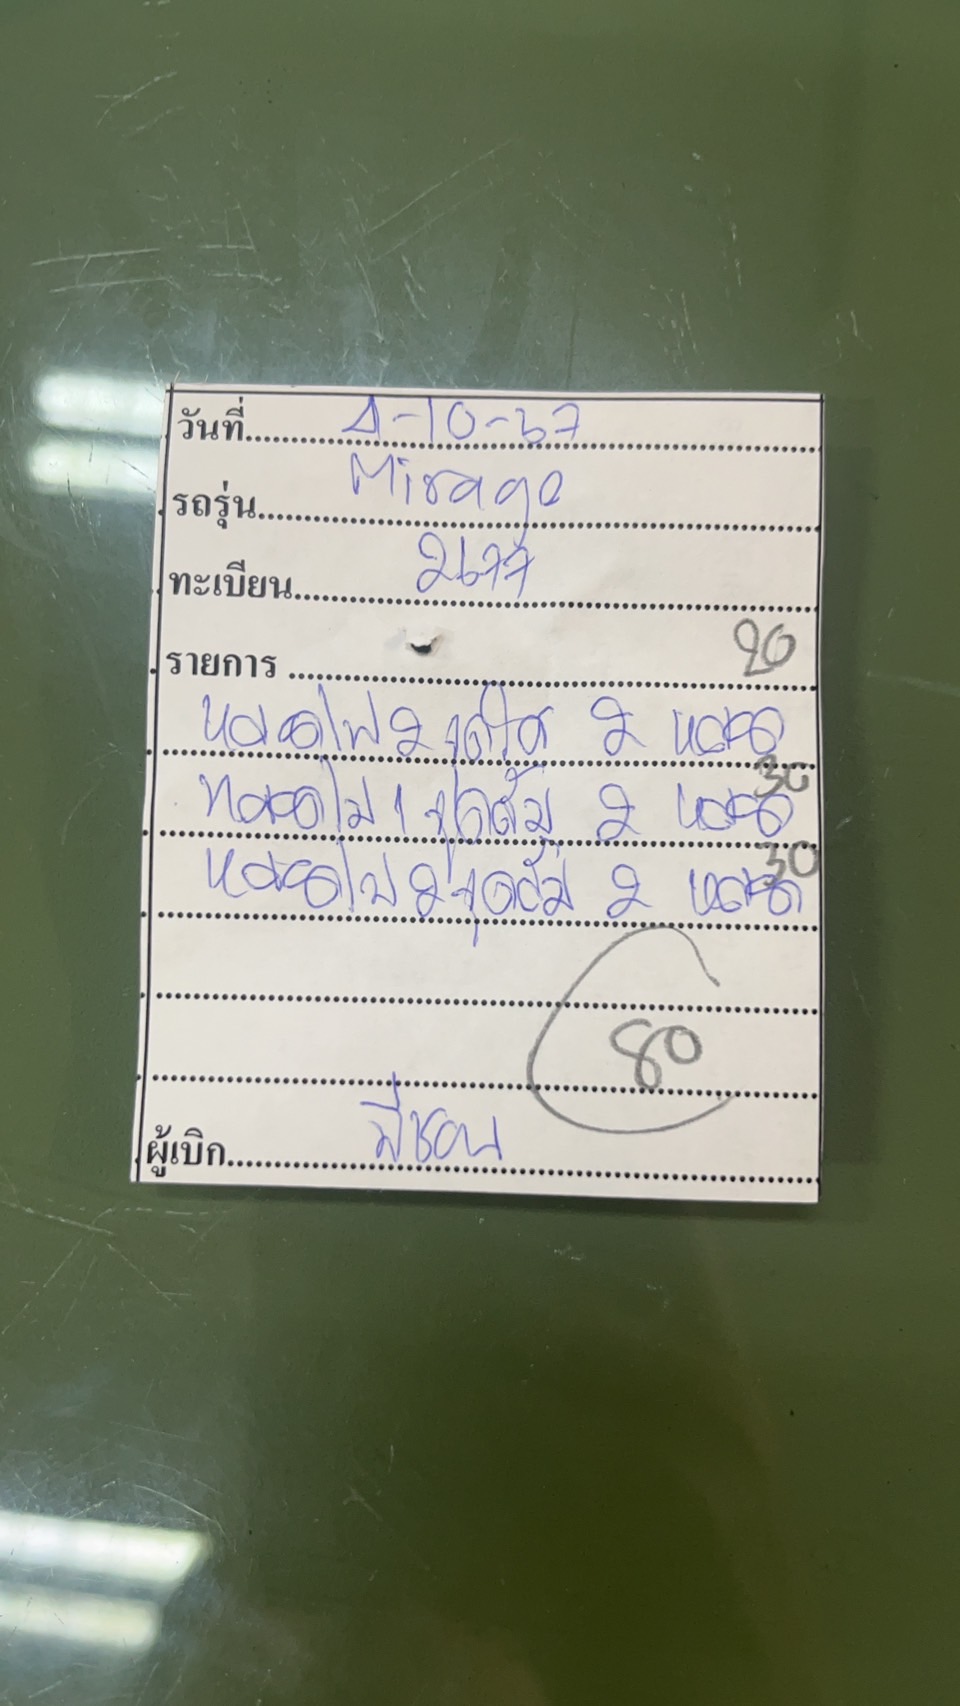 วันที่ 4-10-67
รถรุ่น Mirage
ทะเบียน 2677
รายการ 20
หลอดไฟ 2 จุดใส 2 หลอด
30
หลอดไฟ 1 จุดส้ม 2 หลอด
30
หลอดไฟ 2 จุดส้ม 2 หลอด
80
ผู้เบิก